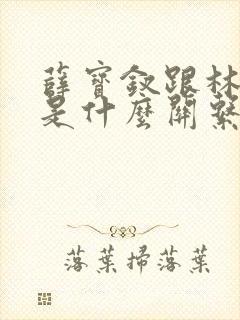 薛寶釵跟林
是什麼關繫
落葉掃落葉